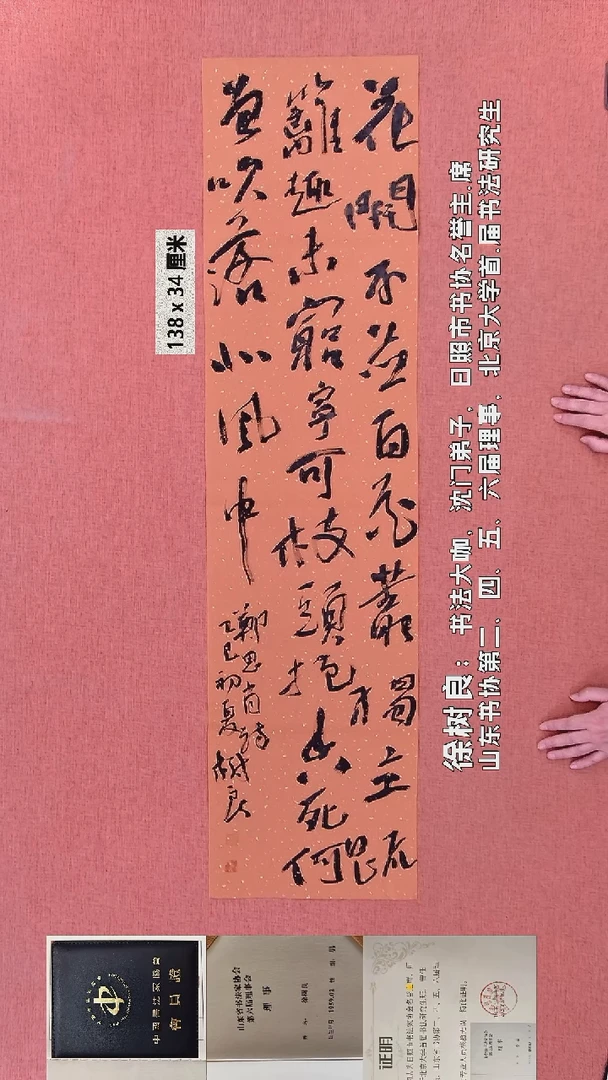 花開不並百花叢獨立疏
籬趣未窮寧可枝頭抱香死何
曾吹落北風中
鄭思肖詩
乙巳初夏樹良
138 x 34 厘米
徐树良：书法大咖，沈门弟子，日照市书协名誉主.席
山东书协第二、四、五、六届理事，北京大学首.届书法研究生
中國書法家協會
會員證
山东省书法家协会
第六届理事会
理 事
证明